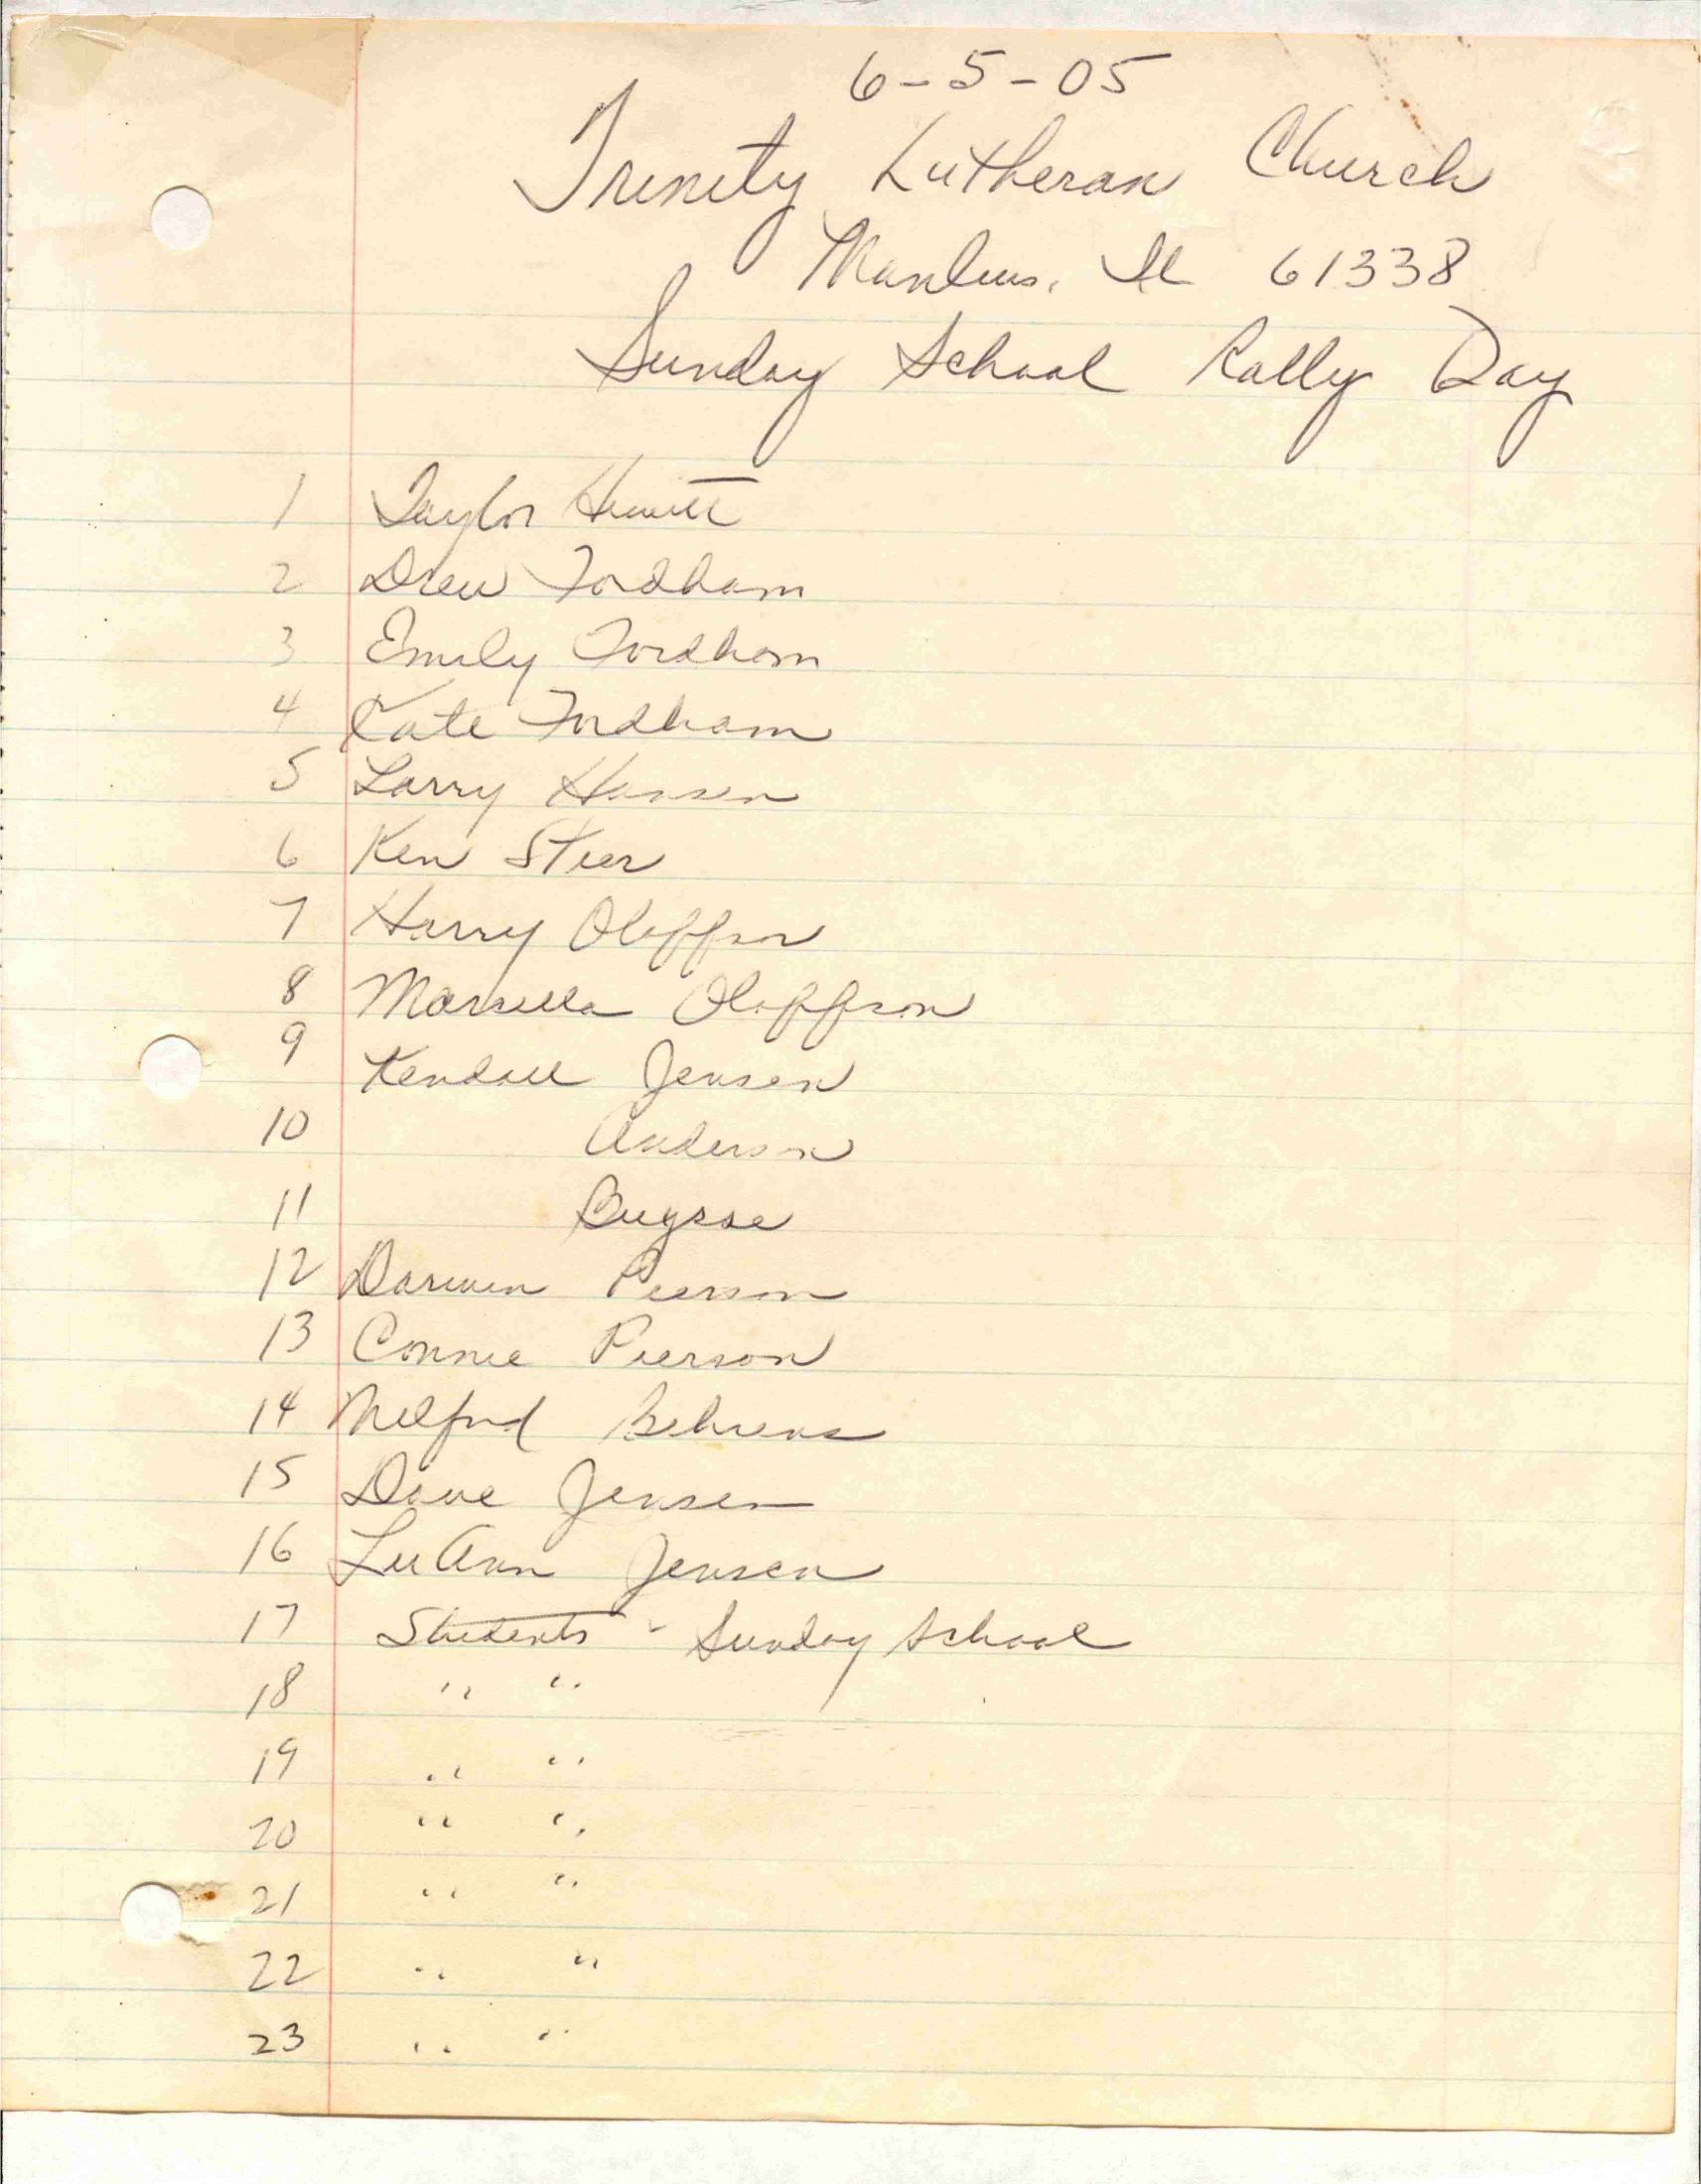 6-5-05
Trinity Lutheran Church
Manlius, Il 61338
Sunday School Rally Day
1 Taylor Hewitt
2 Drew Fordham
3 Emily Fordham
4 Kate Fordham
5 Larry Hansen
6 Ken Steer
7 Harry Oloffson
8 Marsella Oloffson
9 Kendall Jensen
10 Anderson
11 Buysse
12 Darwin Pierson
13 Connie Pierson
14 Milford Behrens
15 Dave Jensen
16 LuAnn Jensen
17 Students - Sunday School
18 " "
19 " "
20 " "
21 " "
22 " "
23 " "